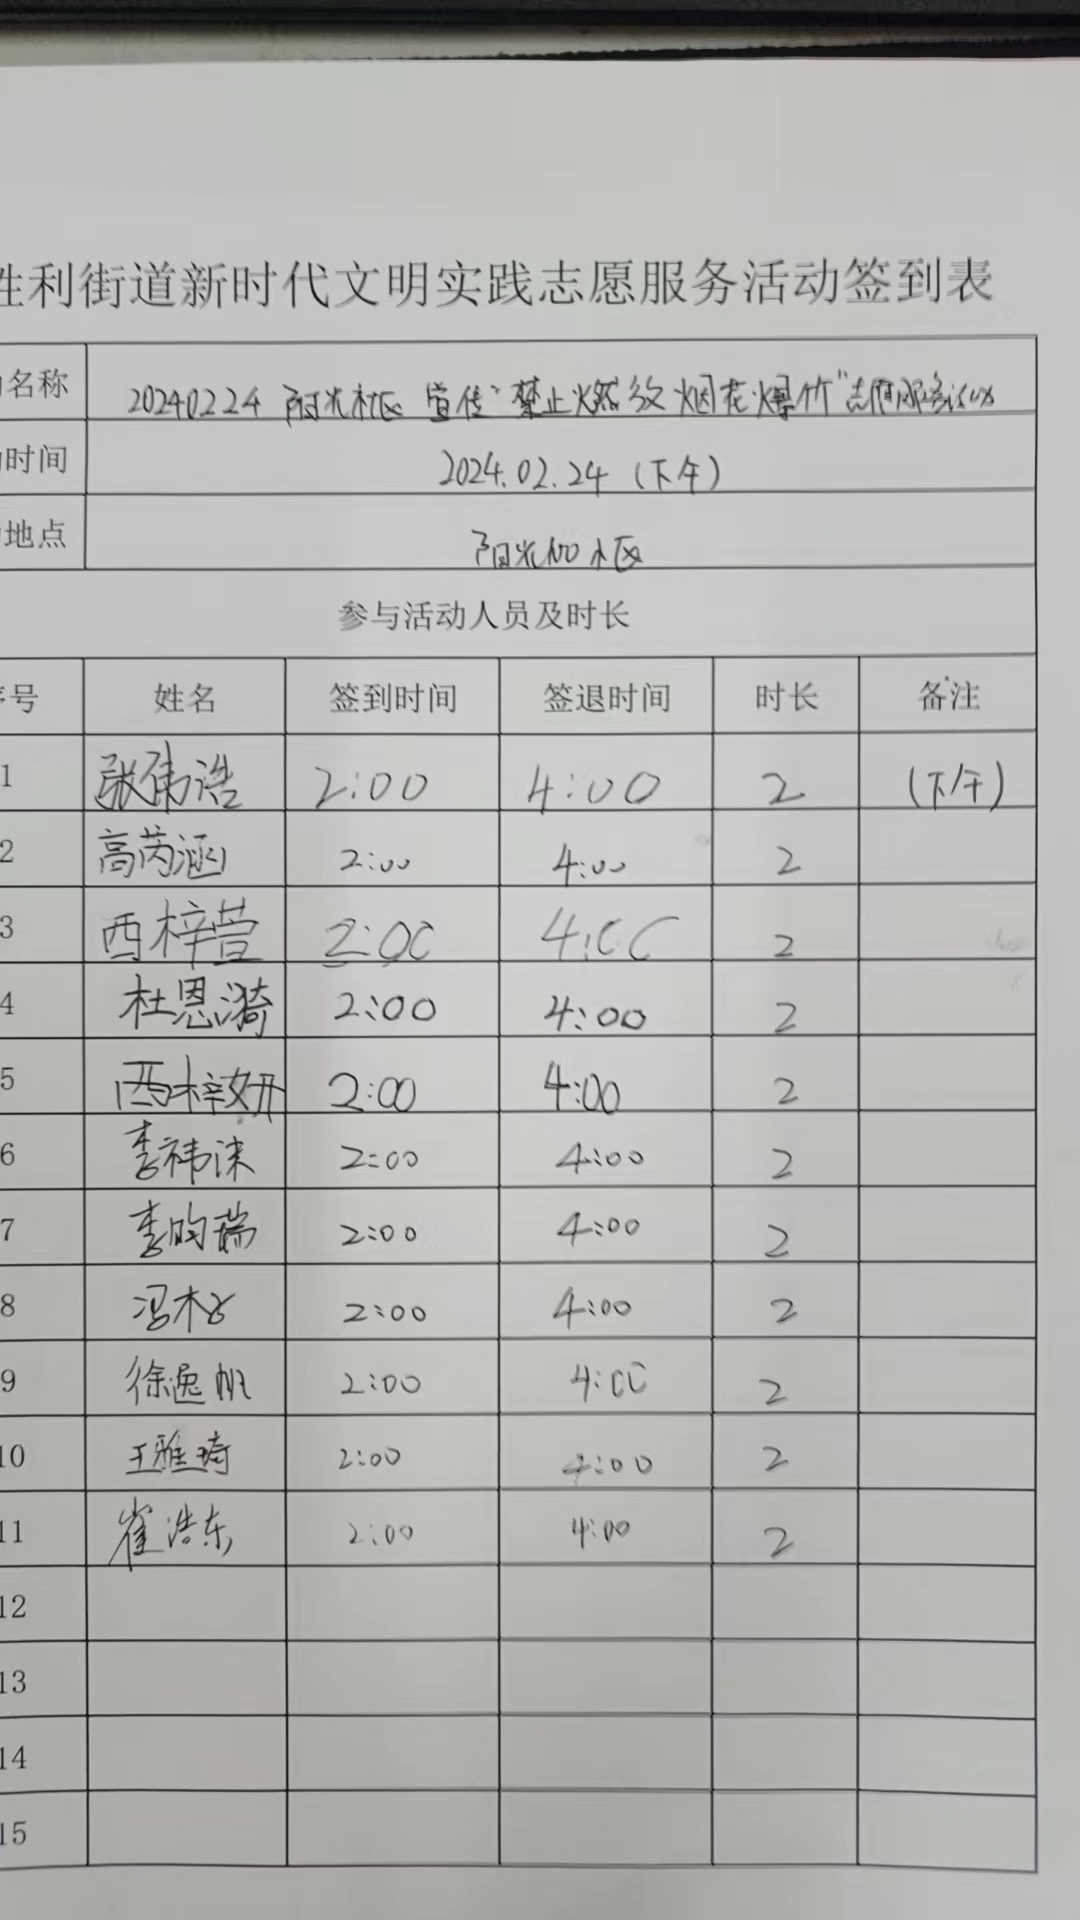 胜利街道新时代文明实践志愿服务活动签到表
名称 20240224 阳光社区 宣传"禁止燃放烟花爆竹"志愿服务活动
时间 2024.02.24 (下午)
地点 阳光100小区
参与活动人员及时长
序号 姓名 签到时间 签退时间 时长 备注
1 张伟浩 2:00 4:00 2 (下午)
2 高芮涵 2:00 4:00 2
3 西梓萱 2:00 4:00 2
4 杜恩漪 2:00 4:00 2
5 西梓妍 2:00 4:00 2
6 李祎沫 2:00 4:00 2
7 李昀瑞 2:00 4:00 2
8 冯木 2:00 4:00 2
9 徐逸帆 2:00 4:00 2
10 王雅琦 2:00 4:00 2
11 崔浩东 2:00 4:00 2
12
13
14
15